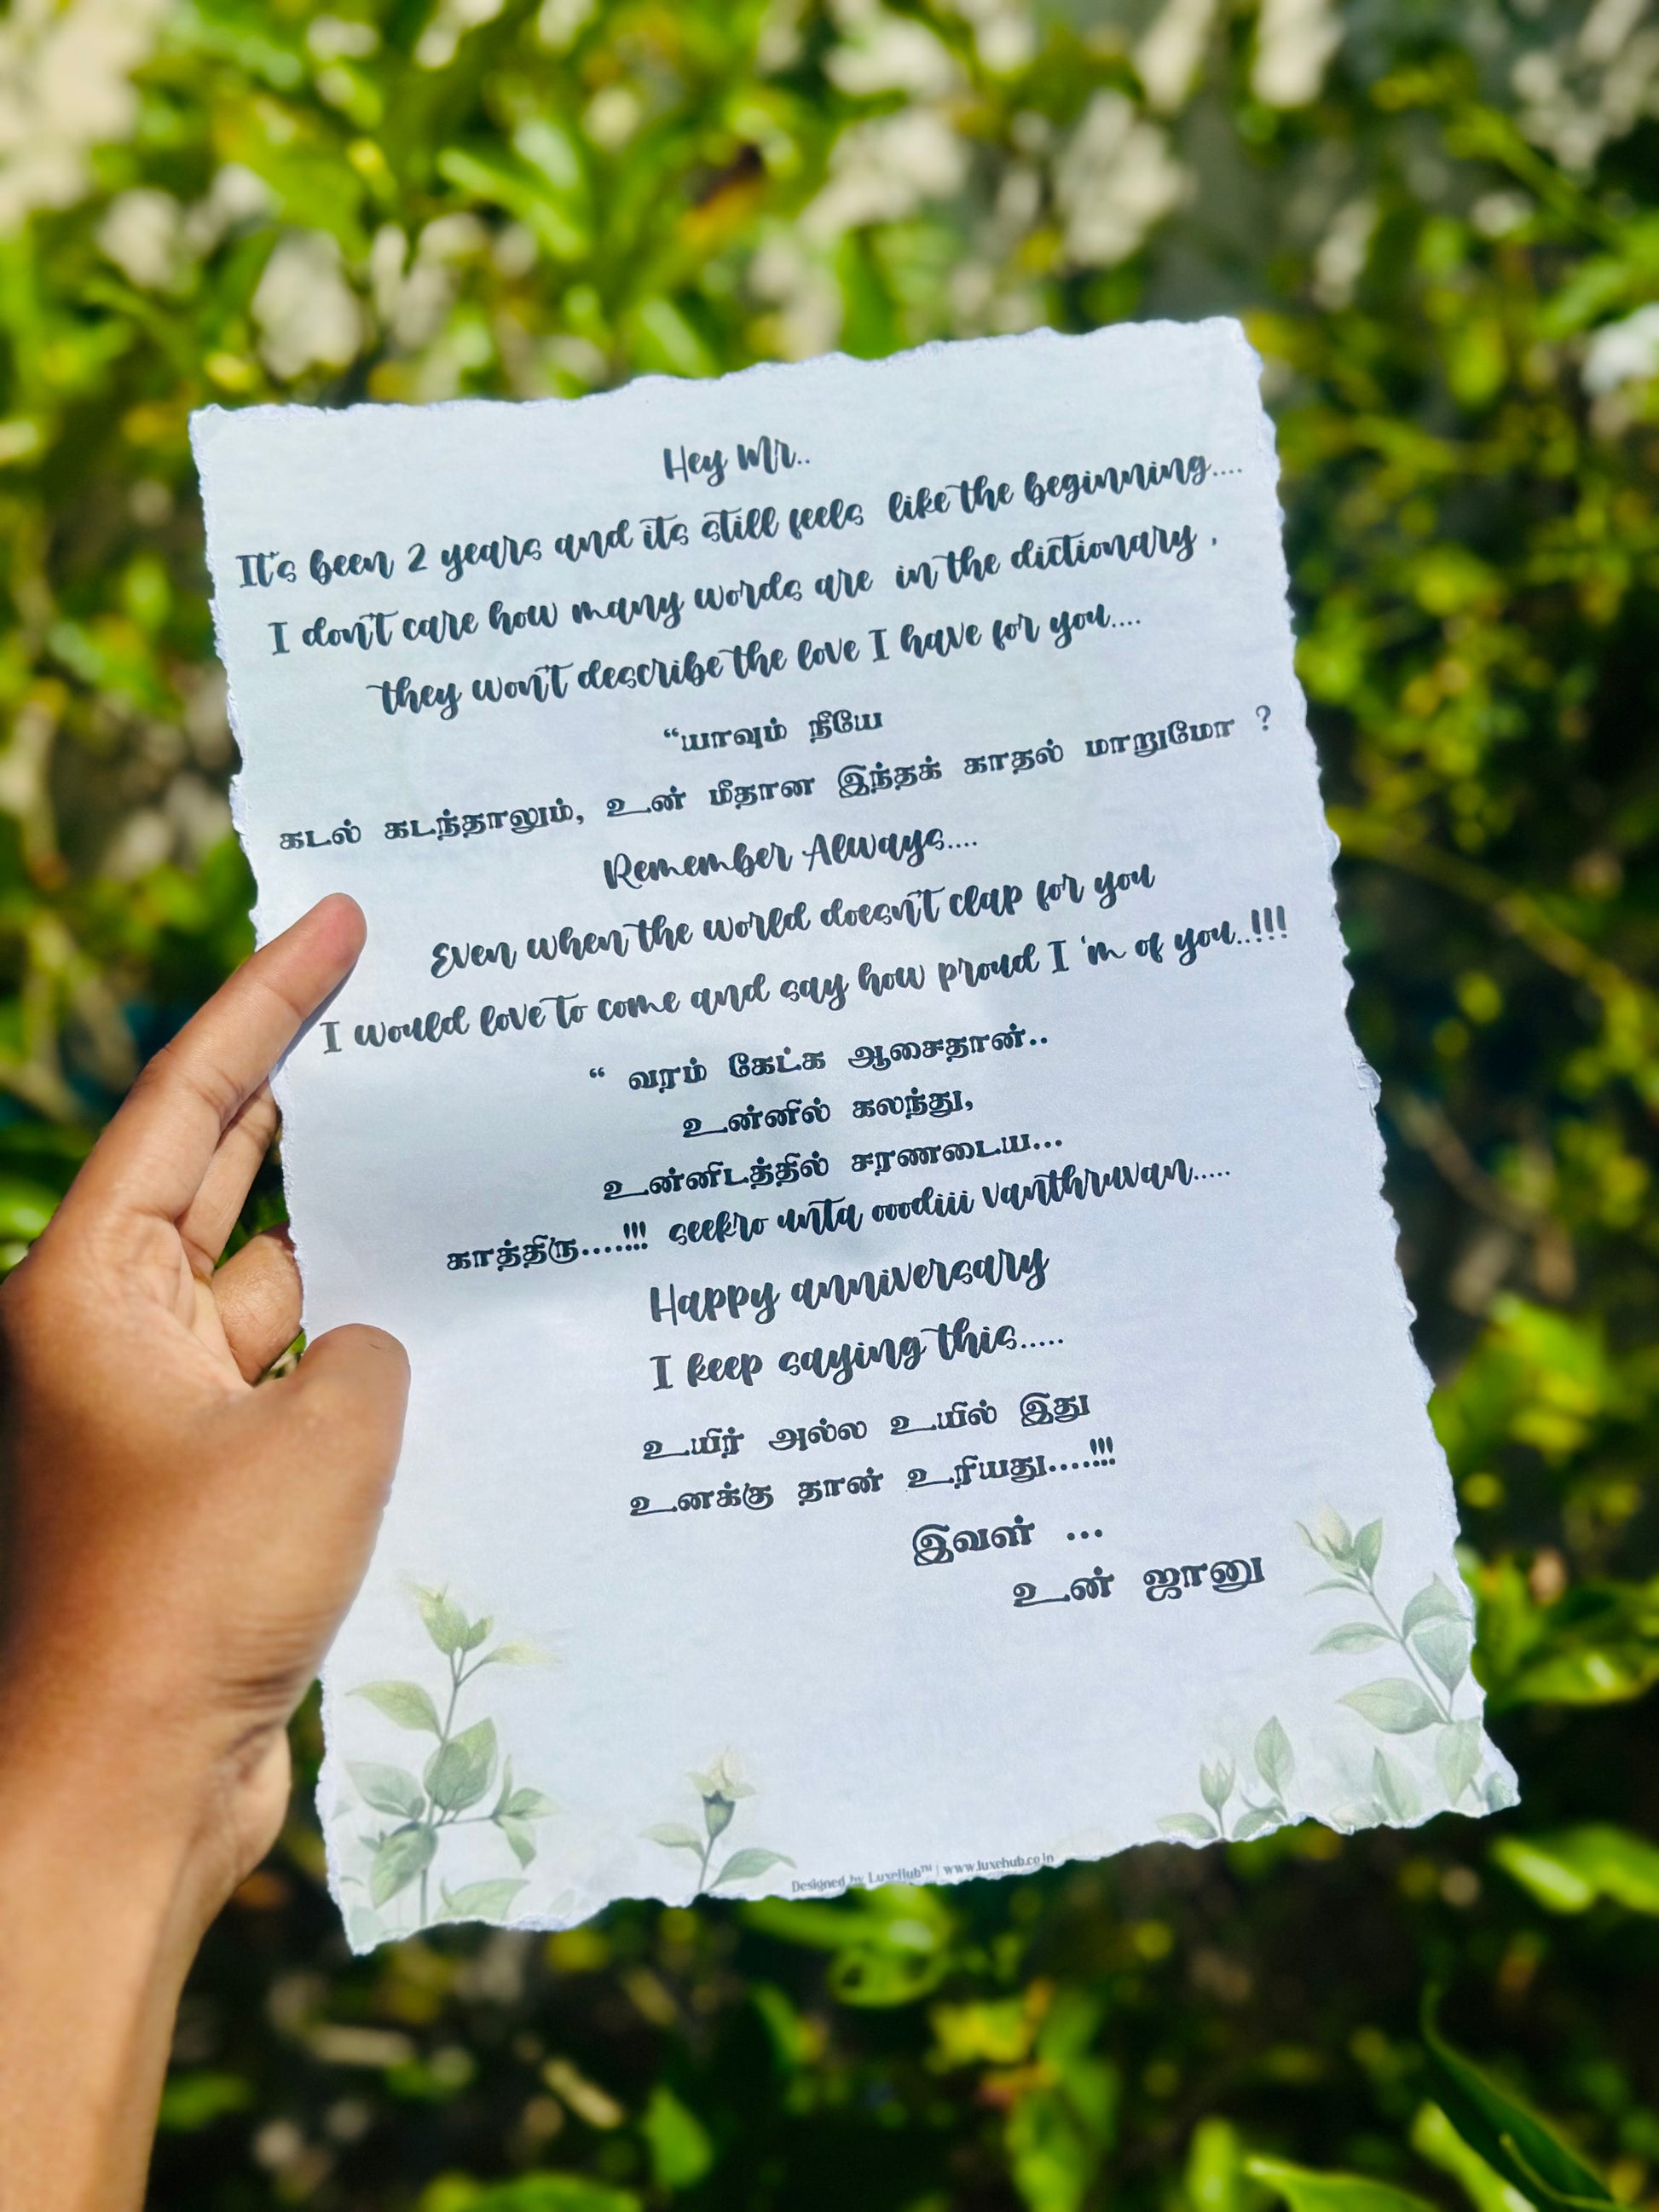 Hey Mr..
It's been 2 years and its still feels like the beginning....
I don't care how many words are in the dictionary ,
they won't describe the love I have for you....
“யாவும் நீயே
கடல் கடந்தாலும், உன் மீதான இந்தக் காதல் மாறுமோ ?
Remember Always....
Even when the world doesn't clap for you
I would love to come and say how proud I 'm of you..!!!
“ வரம் கேட்க ஆசைதான்..
உன்னில் கலந்து,
உன்னிடத்தில் சரணடைய...
காத்திரு....!!! seekro unta ooodiii vanthruvan.....
Happy anniversary
I keep saying this.....
உயிர் அல்ல உயில் இது
உனக்கு தான் உரியது....!!!
இவள் ...
உன் ஜானு
Designed by LuxeHub™ | www.luxehub.co.in